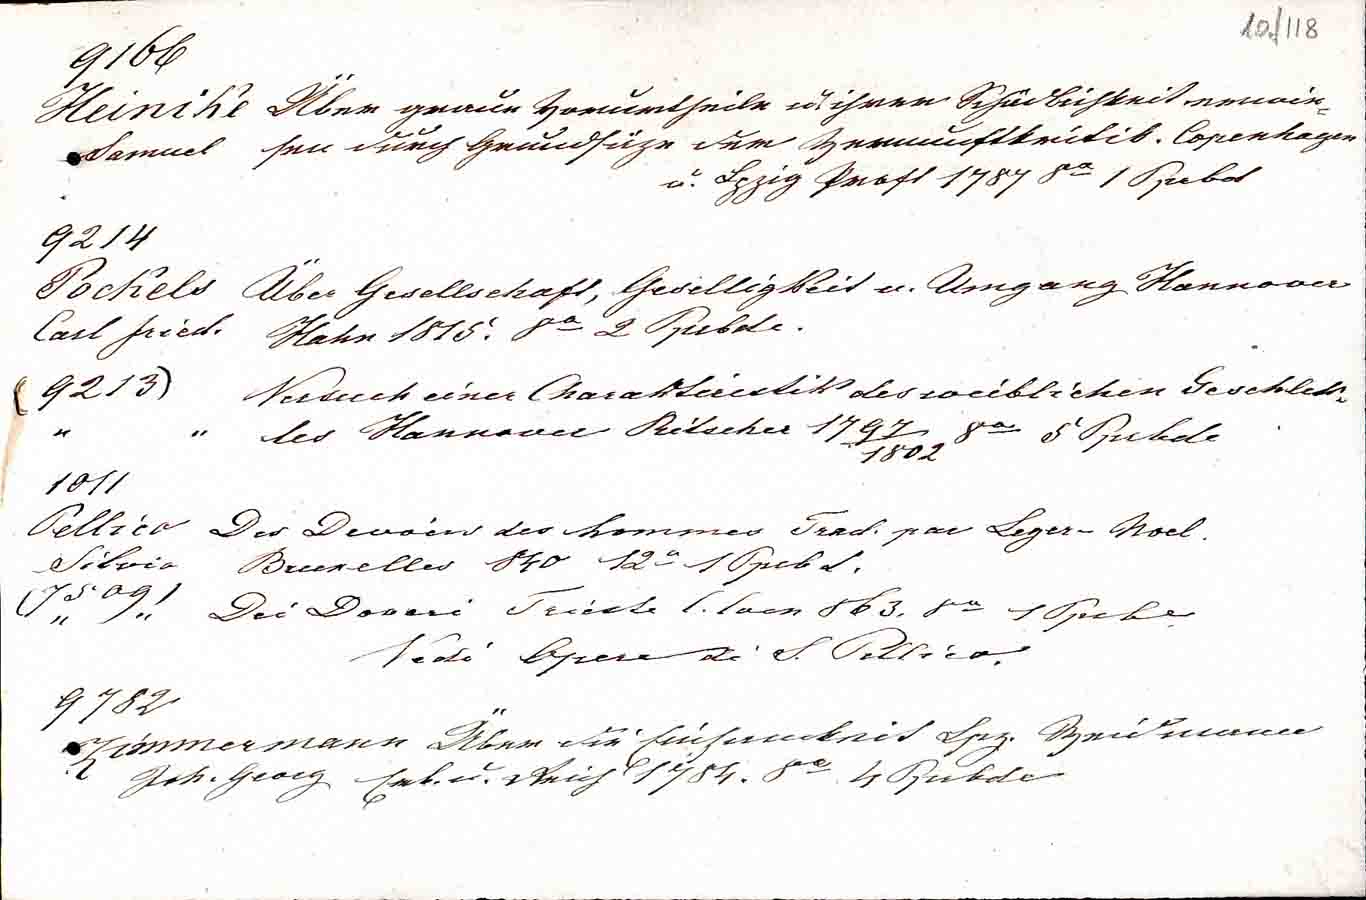 10/118
9166
Heinike Über graue Vorurtheile u ihrer Schädlichkeit erwie=
Samuel sen durch Grundsätze der Vernunftkritik. Copenhagen
u. Lpzig Proft 1787 8ª 1 Ppcbd
9214
Pockels Über Gesellschaft, Geselligkeit u. Umgang Hannover
Carl Fried. Hahn 1815. 8ª 2 Ppcbde.
(9213) Versuch einer Charakteristik des weiblichen Geschlech-
" " tes Hannover Ritscher 1797/1802 8ª 5 Ppcbde
1011
Pellico Des Devoirs des hommes Trad. par Leger-Noel.
Silvio Bruxelles 840 12ª 1 Ppcbd.
(7509) " " Dei Doveri Trieste C. Coen 863. 8ª 1 Ppcbd
Vedi Opere di S. Pellico.
9782
Zimmermann Über die Einsamkeit Lpz. Weidmanns
Joh. Georg Erb. u. Reich 1784. 8ª 4 Ppcbde